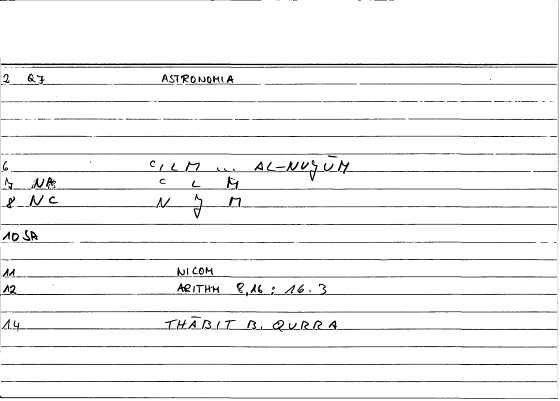 2 QJ ASTRONOMIA
6 ʿILM ... AL-NUǦŪM
7 NA ʿ L M
8 NC N Ǧ M
10 SA
11 NICOM
12 ARITHM 8,16 : 16.3
14 THĀBIT B. QURRA